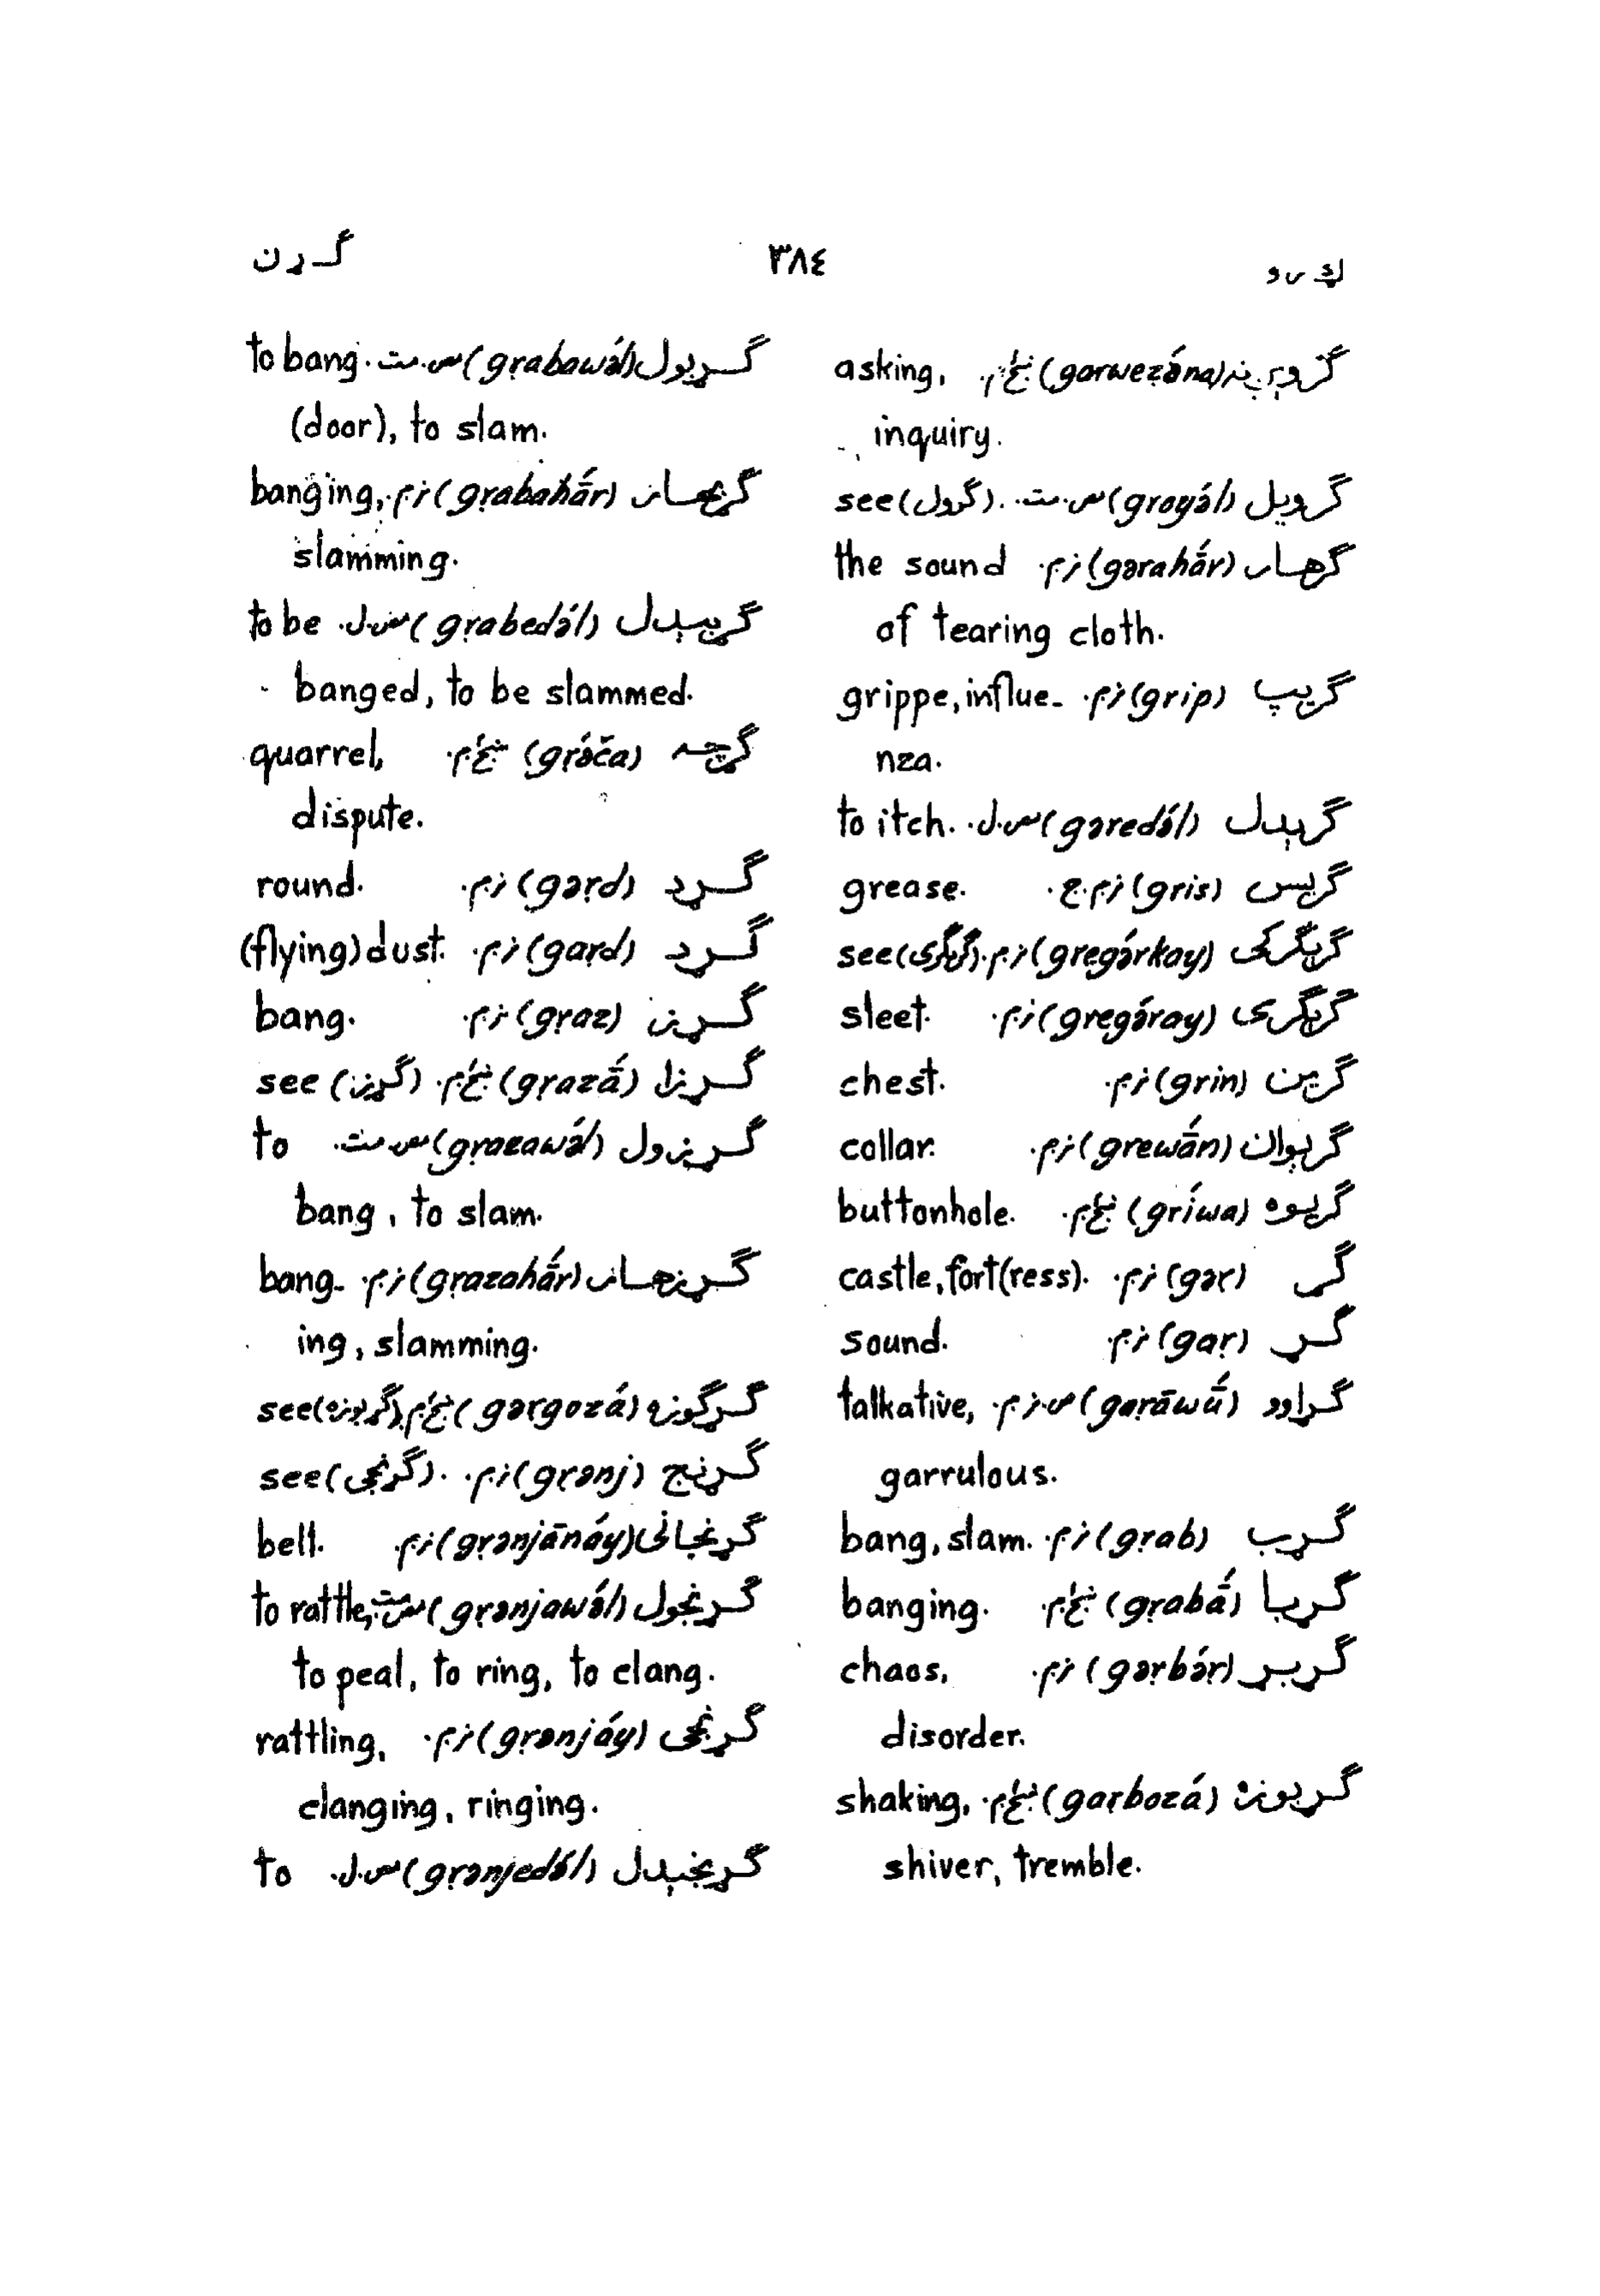 گرو ٣٨٤ گړن
گروېږنه (garwezә́na) ښځ.م. asking,
inquiry.
گرويل (groyә́l) مص.مت. see (گرول).
گرهار (gәrahā́r) نر.م. the sound
of tearing cloth.
گريپ (grip) نر.م. grippe, influe-
nza.
گرېدل (gәredә́l) مص.ل. to itch.
گريس (gris) نر.م.ج. grease.
گرېگرکی (gregә́rkay) نر.م. see (گرېگری)
گرېگری (gregә́ray) نر.م. sleet.
گرين (grin) نر.م. chest.
گرېوان (grewā́n) نر.م. collar.
گريوه (gríwa) ښځ.م. buttonhole.
گړ (gәṛ) نر.م. castle, fort(ress).
گړ (gaṛ) نر.م. sound.
گړاوو (gaṛāwū́) ص.نر.م. talkative,
garrulous.
گړب (gṛab) نر.م. bang, slam.
گړبا (gṛabā́) ښځ.م. banging.
گړبړ (gәṛbә́ṛ) نر.م. chaos,
disorder.
گړبوزه (gaṛbozá) ښځ.م. shaking,
shiver, tremble.
گړبول (gṛabawә́l) مص.مت. to bang
(door), to slam.
گړبهار (gṛabahā́r) نر.م. banging,
slamming.
گړبېدل (gṛabedә́l) مص.ل. to be
banged, to be slammed.
گړچه (gṛә́ča) ښځ.م. quarrel,
dispute.
گړد (gәṛd) نر.م. round.
گړد (gaṛd) نر.م. (flying) dust.
گړز (gṛaz) نر.م. bang.
گړزا (gṛazā́) ښځ.م. see (گړز)
گړزول (gṛazawә́l) مص.مت. to
bang, to slam.
گړزهار (gṛazahā́r) نر.م. bang-
ing, slamming.
گړگوزه (gәṛgozá) ښځ.م. see (گړبوزه)
گړنج (gṛәnj) نر.م. see (گړنجی).
گړنجانی (gṛәnjānáy) نر.م. bell.
گړنجول (gṛәnjawә́l) مص.مت. to rattle,
to peal, to ring, to clang.
گړنجی (gṛәnjáy) نر.م. rattling,
clanging, ringing.
گړنجېدل (gṛәnjedә́l) مص.ل. to